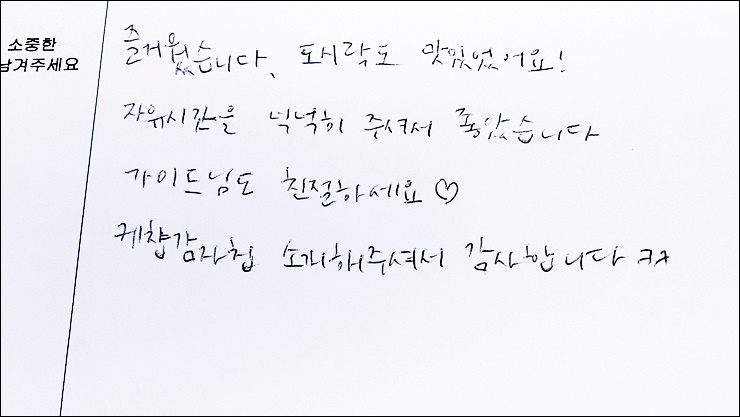 소중한
남겨주세요
즐거웠습니다. 도시락도 맛있었어요!
자유시간을 넉넉히 주셔서 좋았습니다
가이드님도 친절하세요♡
케찹감자칩 소개해주셔서 감사합니다 ㅋㅋ